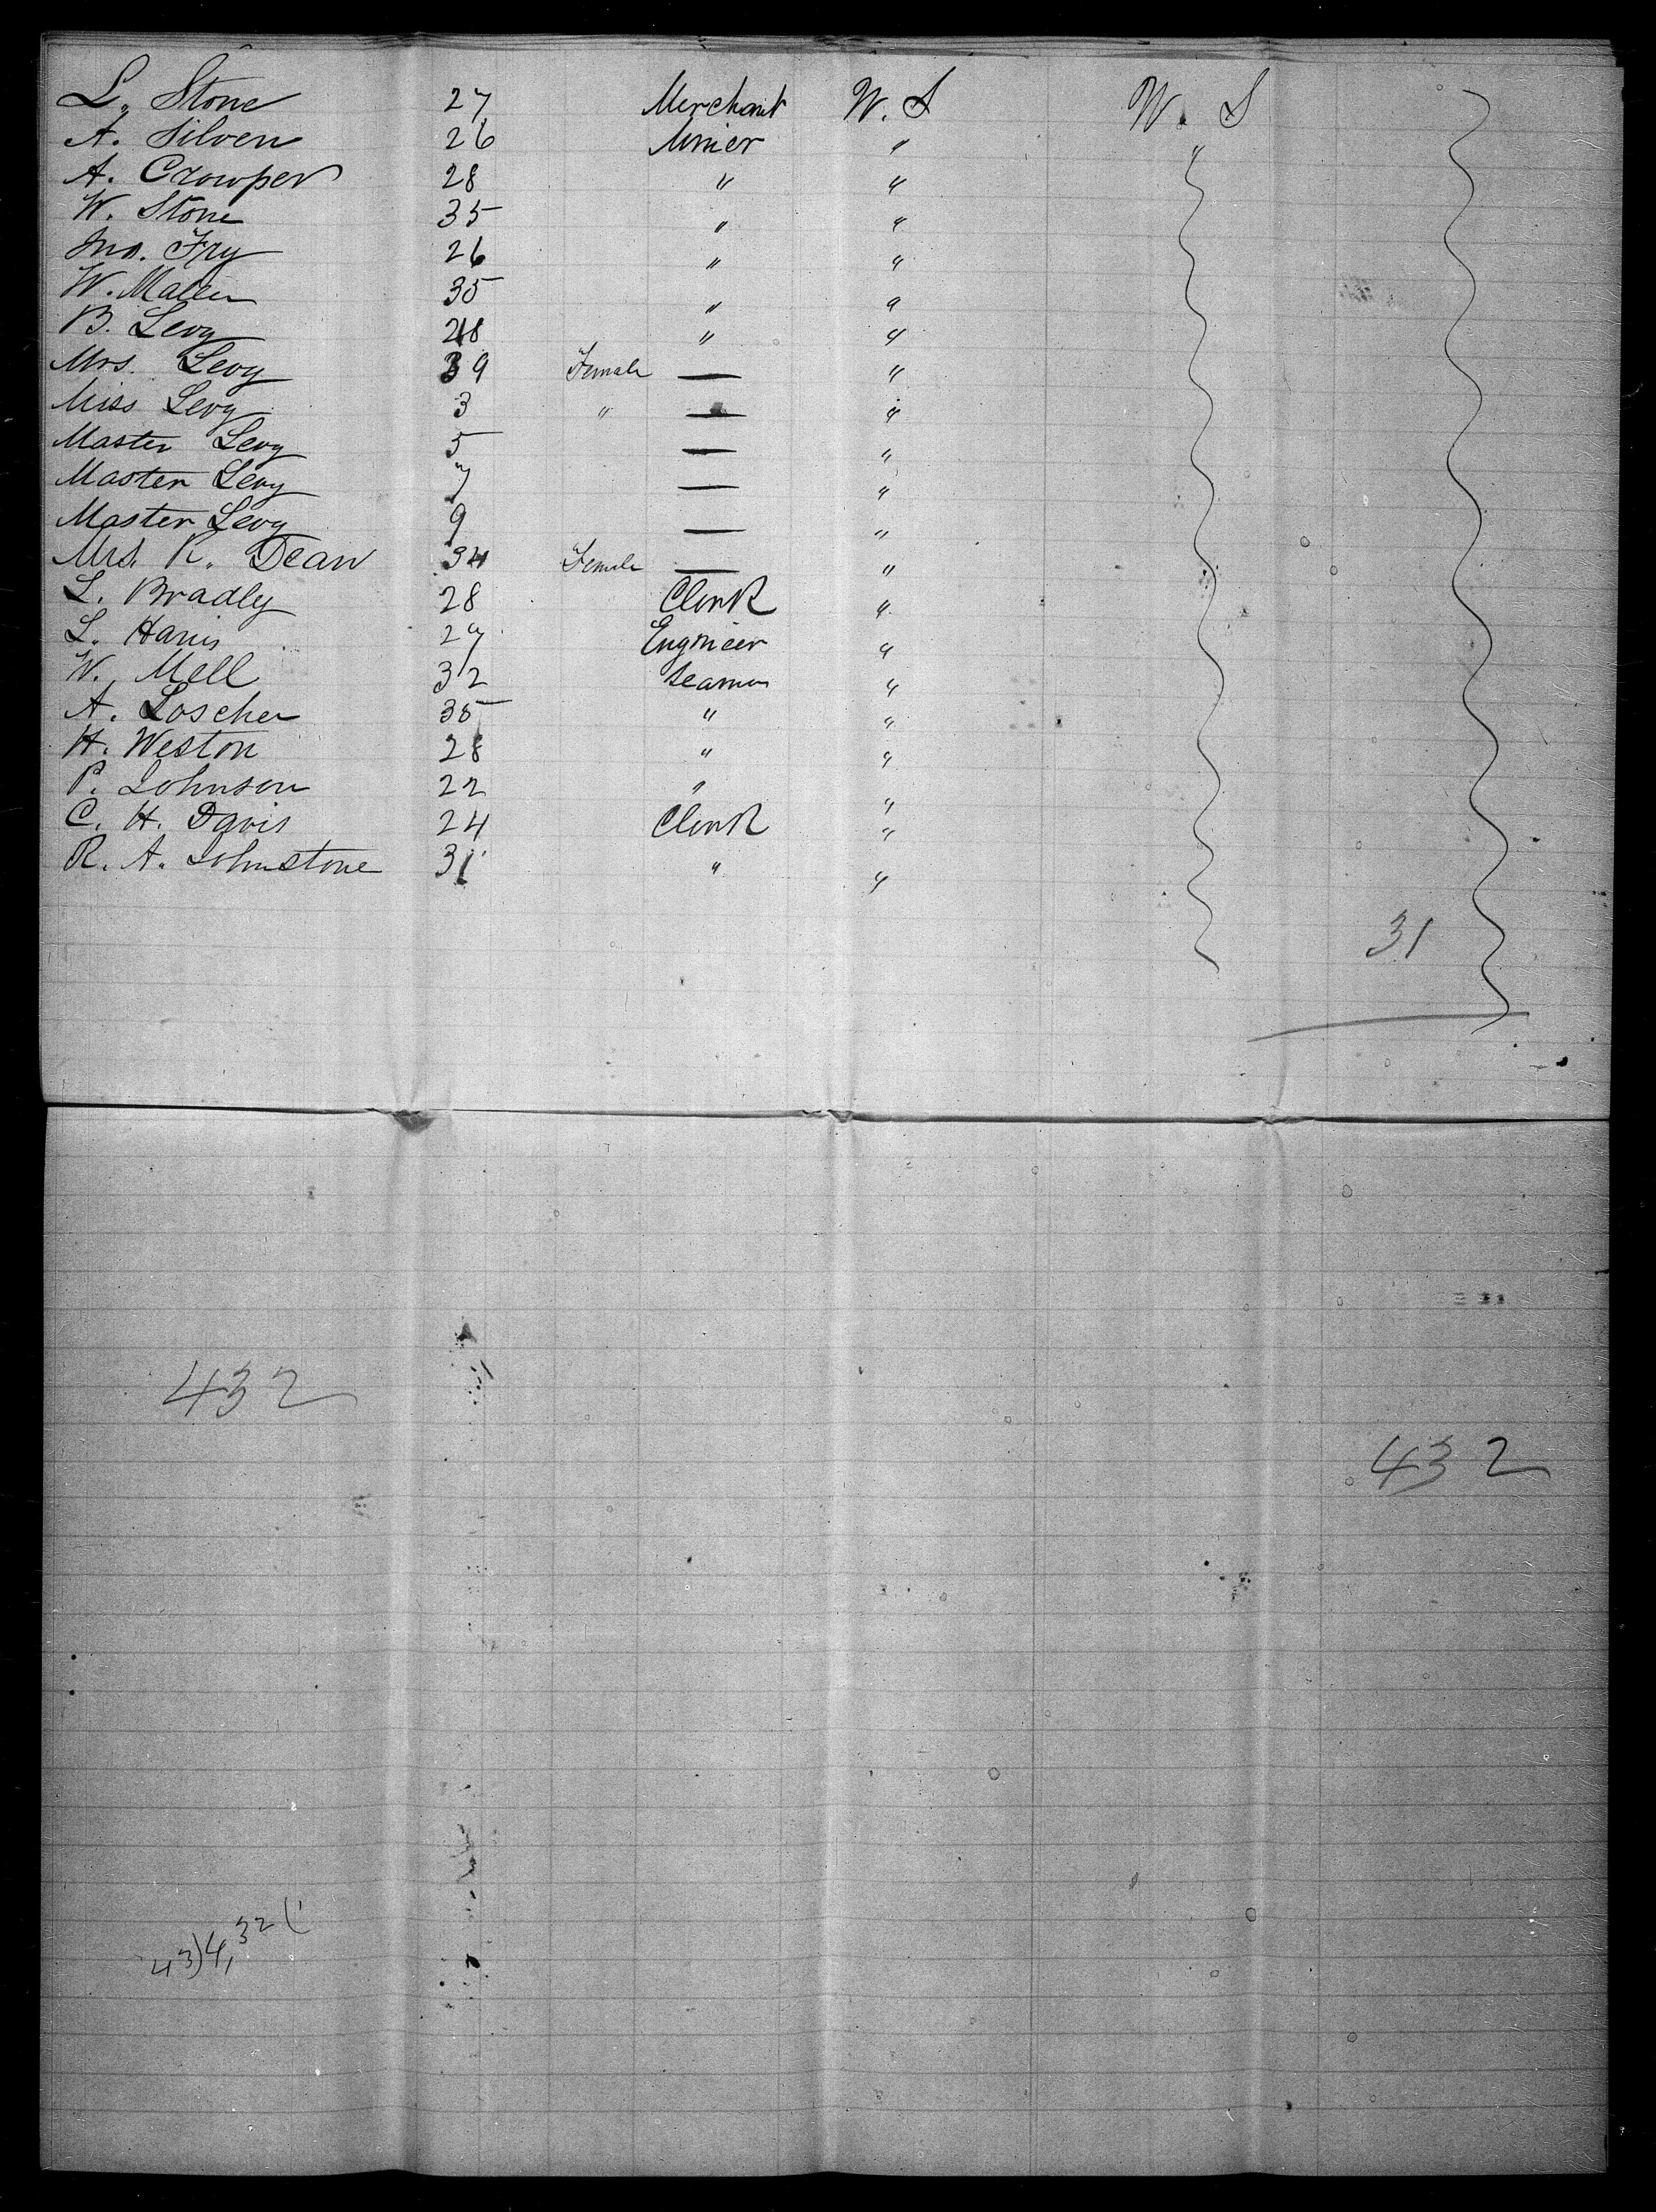 L. Stone 27 Merchant W. S W. S
A. Silven 26 Minier " "
A. Crowper 28 " "
W. Stone 35 " "
Jno. Fry 26 " "
W. 35 " "
B. Levy 28 " "
Mrs. Levy 39 Female — "
Miss Levy 3 " — "
Master Levy 5 — "
Master Levy 7 — "
Master Levy 9 — "
Mrs. R. Dean 34 Female — "
L. Bradly 28 Clerk "
L. Harris 27 Engineer "
W. Mell 32 Seaman "
A. Loscher 35 " "
H. Weston 28 " "
P. Johnson 22 " "
C. H. Davis 24 Clerk "
R. A. Johnstone 31 " "
31
432
432
43)4,32(1